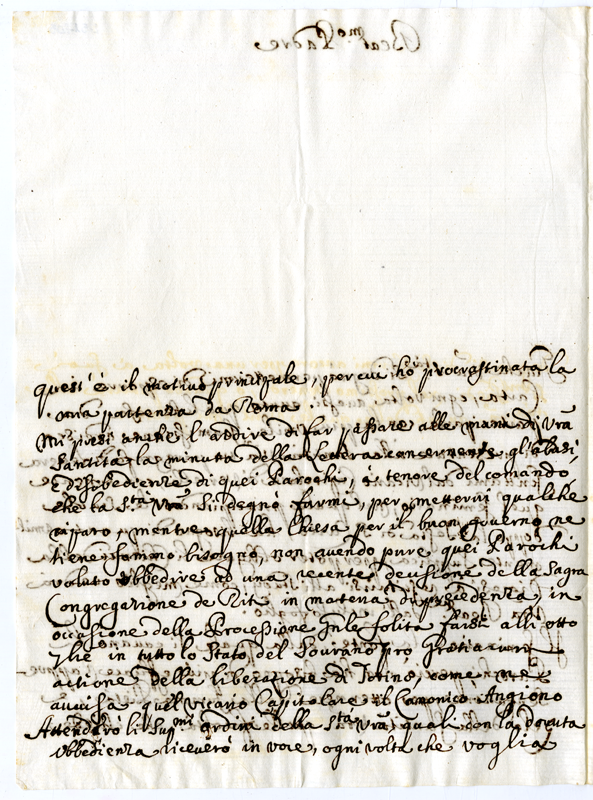 Beat.mo Padre
quest'è il motivo principale, per cui hò procrastinata la
mia partenza da Roma.
Mi presi anche l'ardire di far passare alle mani di Vrã
Santità la minuta della Lettera concernente gl'abusi,
e disobedienze di quei Parochi, à tenore del comando,
che la S.tà Vrã si degnò farmi, per metterui qualche
riparo, mentre quella Chiesa per il buon gouerno ne
tiene sommo bisogno, non auendo pure quei Parochi
voluto vbbedire ad una recente decisione della Sagra
Congregazione de Riti in materia di precedenza, in
occasione della Processione solita farsi alli otto
in tutto lo Stato del Sourano pro Gratiarum
actione della liberazione di Torino, come me
auuisa quel Vicario Capitolare il Canonico Angiono
Attenderò li Sup.mi ordini della S.tà Vrã, quali con la douuta
vbbedienza riceuerò in voce, ogni volta che voglia